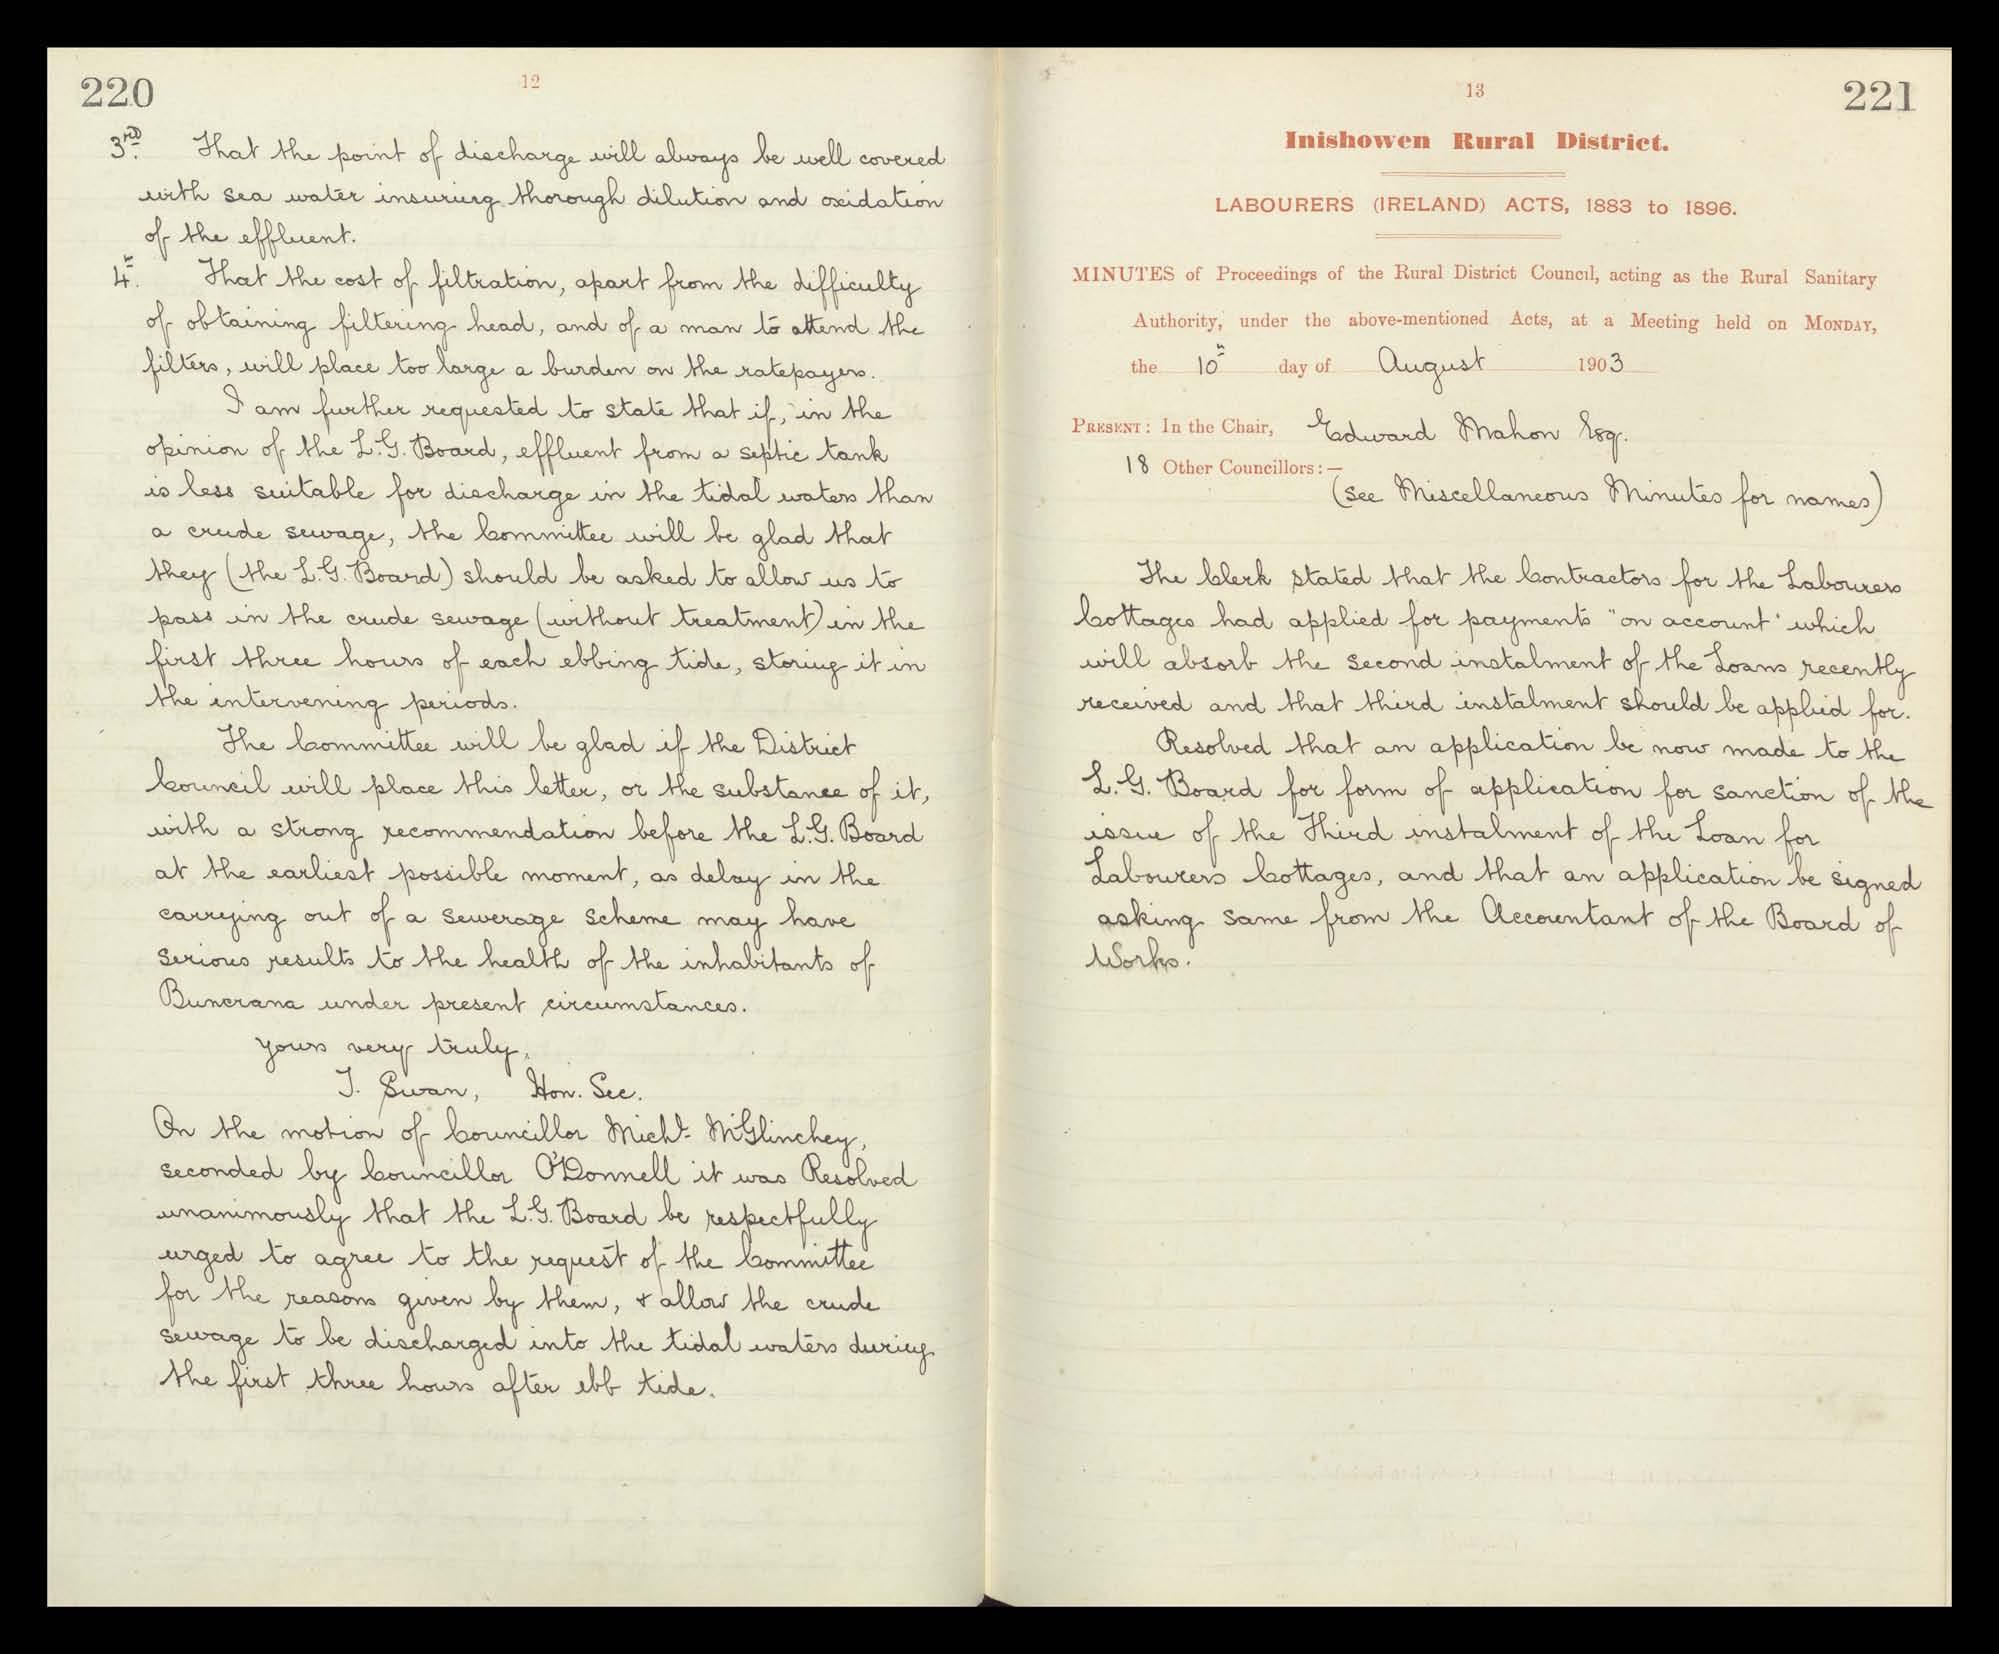 220
12
3rd. That the point of discharge will always be well covered
with sea water insuring thorough dilution and oxidation
of the effluent.
4th. That the cost of filtration, apart from the difficulty
of obtaining filtering head, and of a man to attend the
filters, will place too large a burden on the ratepayers.
I am further requested to state that if, in the
opinion of the L.G. Board, effluent from a septic tank
is less suitable for discharge in the tidal waters than
a crude sewage, the Committee will be glad that
they (the L.G. Board) should be asked to allow us to
pass in the crude sewage (without treatment) in the
first three hours of each ebbing tide, storing it in
the intervening periods.
The Committee will be glad if the District
Council will place this letter, or the substance of it,
with a strong recommendation before the L.G. Board
at the earliest possible moment, as delay in the
carrying out of a sewerage scheme may have
serious results to the health of the inhabitants of
Buncrana under present circumstances.
Yours very truly,
J. Swan, Hon. Sec.
On the motion of Councillor Michl. McGlinchey,
seconded by Councillor O'Donnell it was Resolved
unanimously that the L.G. Board be respectfully
urged to agree to the request of the Committee
for the reasons given by them, & allow the crude
sewage to be discharged into the tidal waters during
the first three hours after ebb tide.
13
221
Inishowen Rural District.
LABOURERS (IRELAND) ACTS, 1883 to 1896.
MINUTES of Proceedings of the Rural District Council, acting as the Rural Sanitary
Authority, under the above-mentioned Acts, at a Meeting held on MONDAY,
the 10th day of August 1903
PRESENT: In the Chair, Edward Mahon Esq.
18 Other Councillors:—
(see Miscellaneous Minutes for names)
The Clerk stated that the Contractors for the Labourers
Cottages had applied for payments "on account" which
will absorb the second instalment of the Loans recently
received and that third instalment should be applied for.
Resolved that an application be now made to the
L.G. Board for form of application for sanction of the
issue of the Third instalment of the Loan for
Labourers Cottages, and that an application be signed
asking same from the Accountant of the Board of
Works.